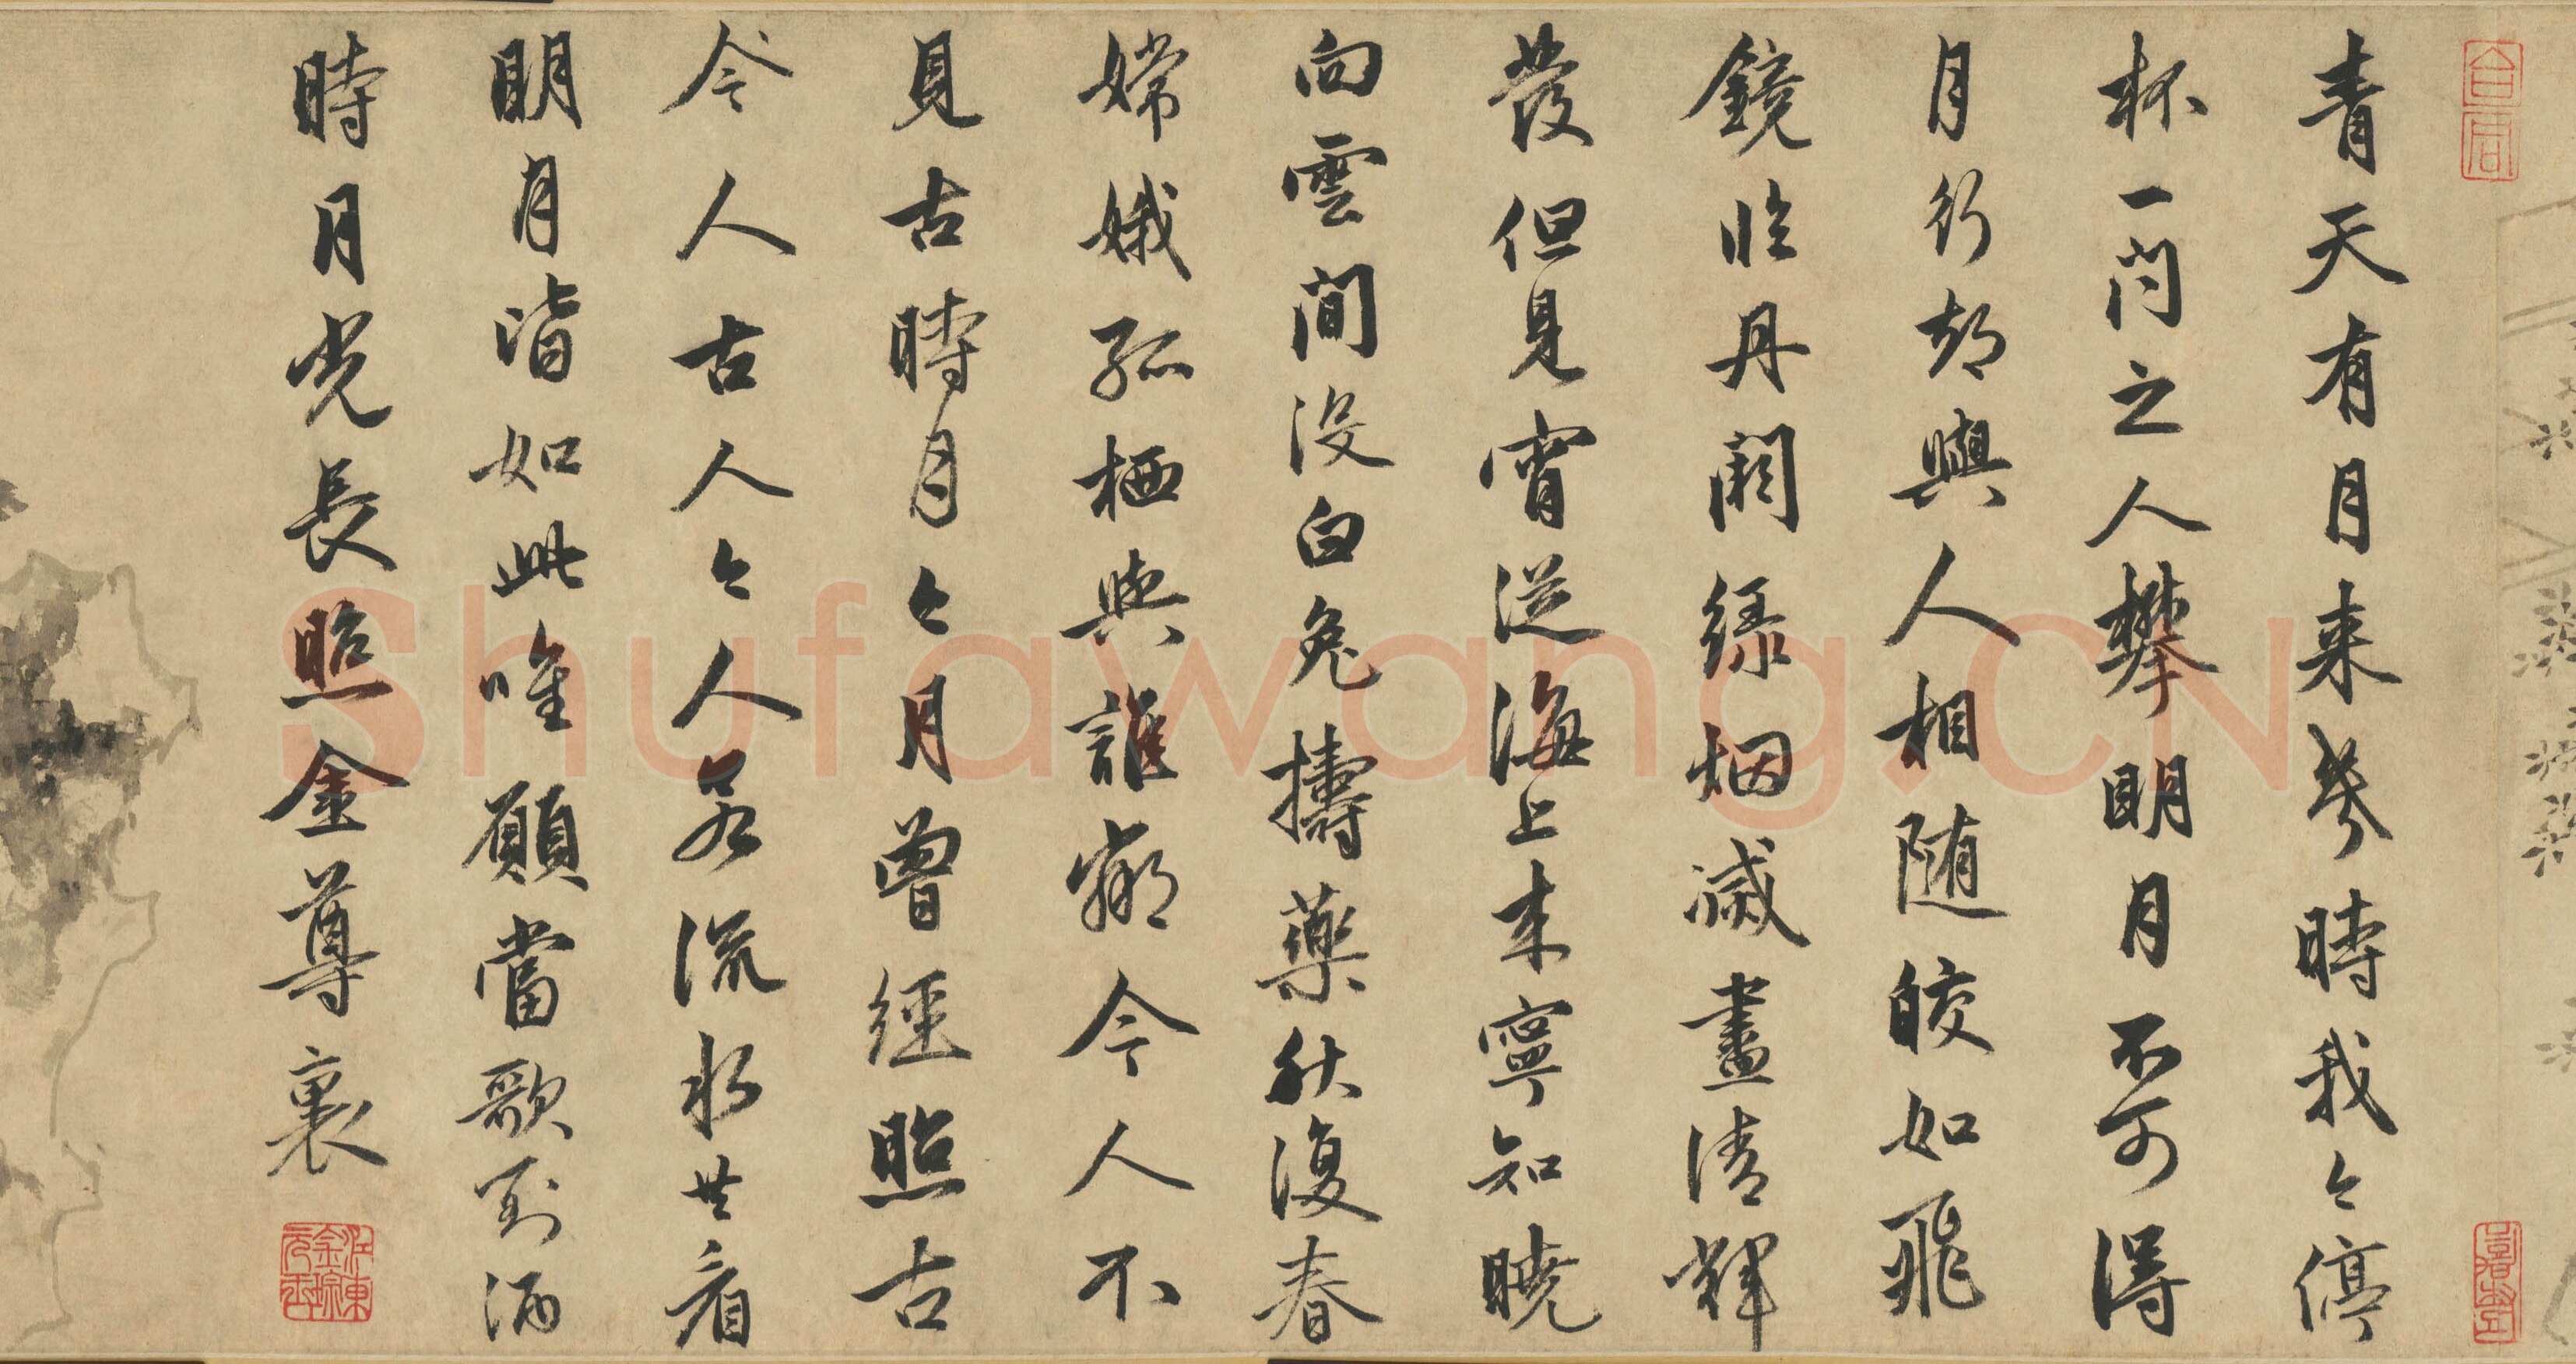 青天有月来幾時我々停
杯一問之人攀明月不可得
月行却與人相随皎如飛
鏡臨丹闕緑烟滅盡清輝
發但見宵從海上来寧知曉
向雲間没白兔擣藥秋復春
嫦娥孤栖與誰鄰今人不
見古時月々月曾經照古
今人古人々人若流水共看
明月皆如此唯願當歌對酒
時月光長照金尊裏
江東金琮元玉
Shufawang.CN